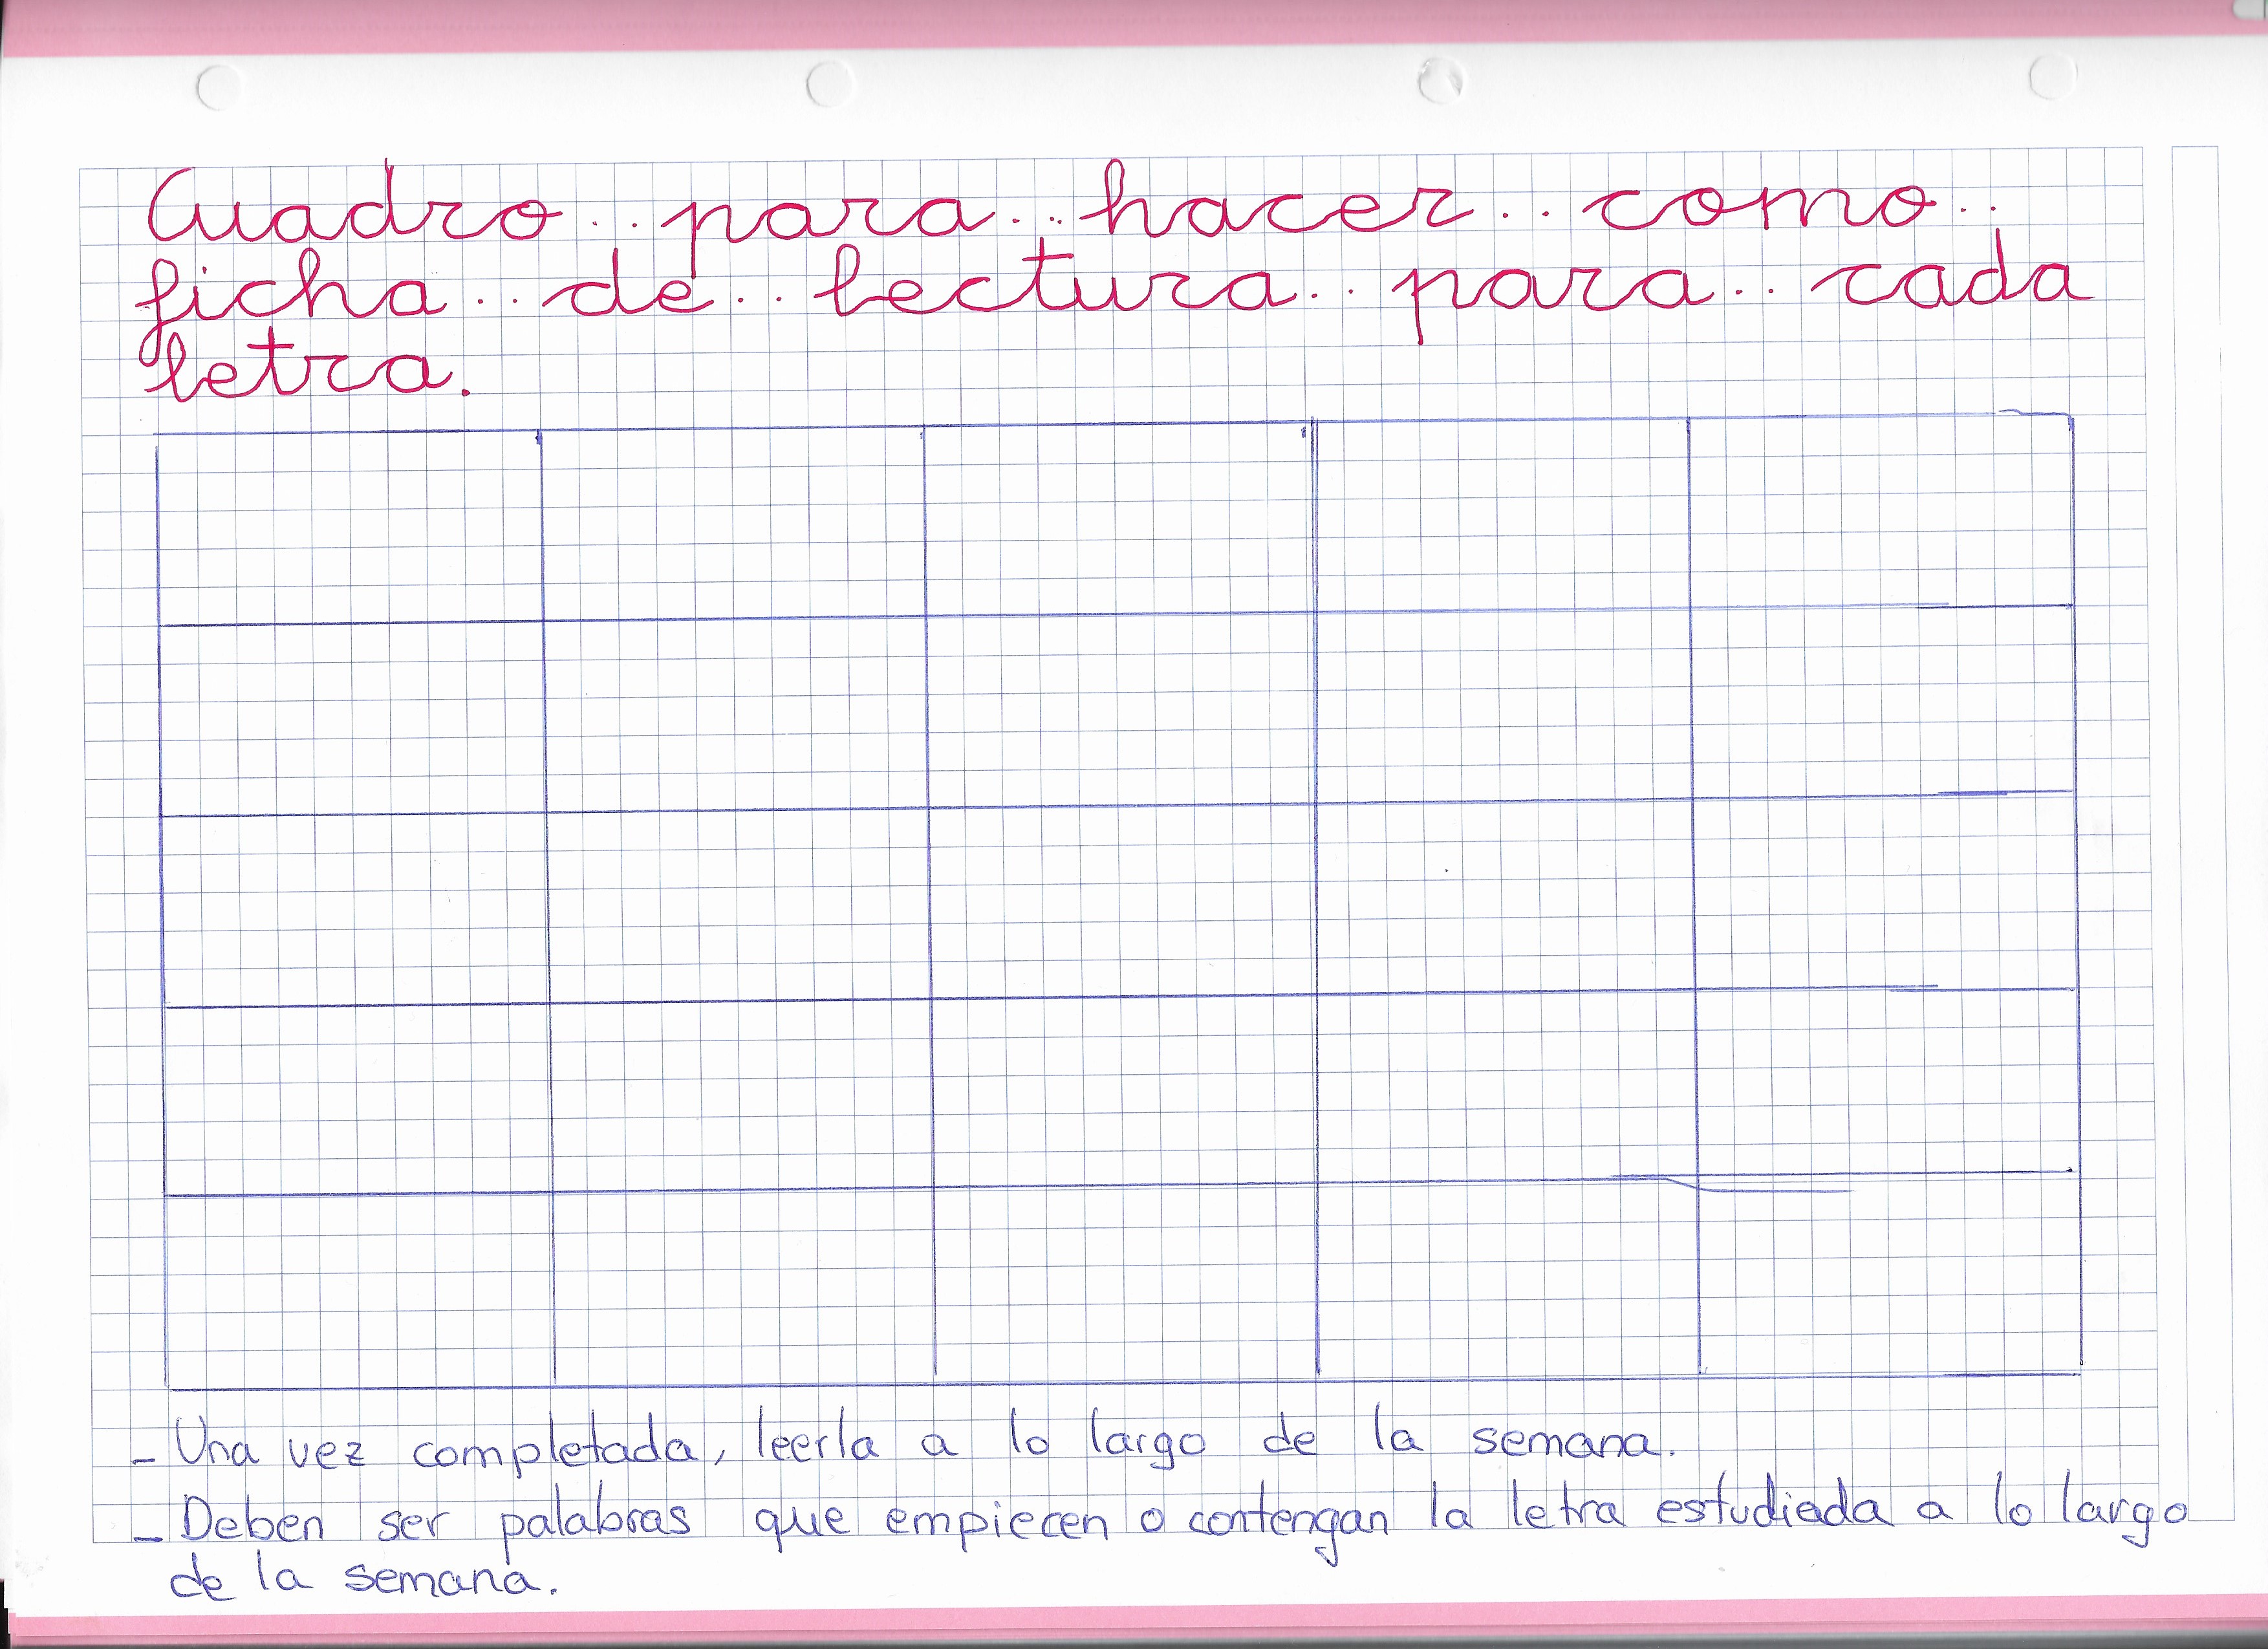 Cuadro..para...hacer..como..
ficha..de..lectura..para..cada
letra.
- Una vez completada, leerla a lo largo de la semana.
- Deben ser palabras que empiecen o contengan la letra estudiada a lo largo
de la semana.